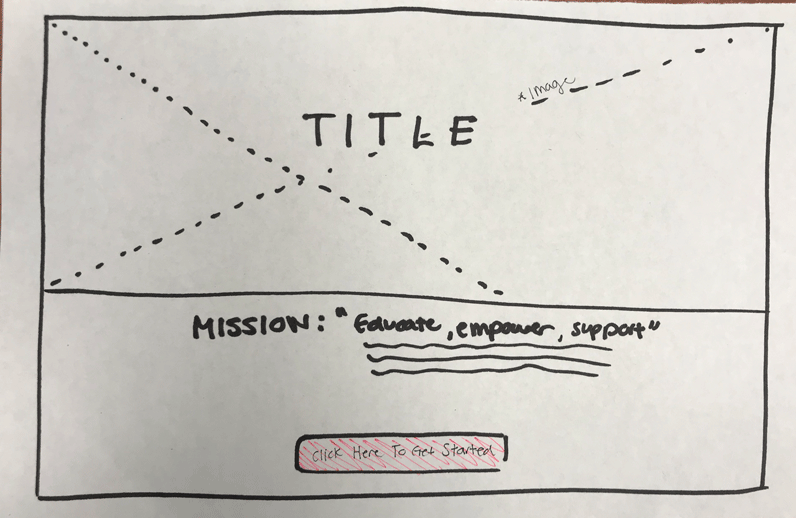 *Image
TITLE
MISSION: "Educate, empower, support"
Click Here To Get Started